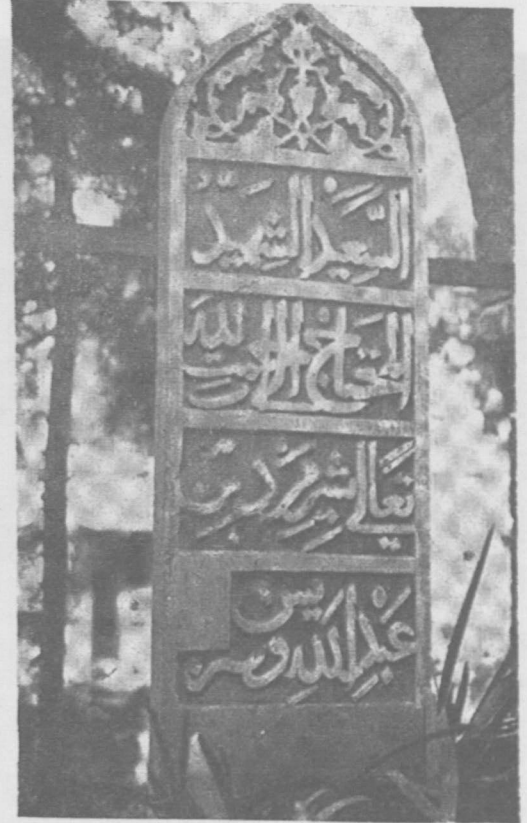 السَّعِيدُ الشَّهِيدُ
المحتاج الى رحمت الله
تعالى شيرمرد بن
عبد الله